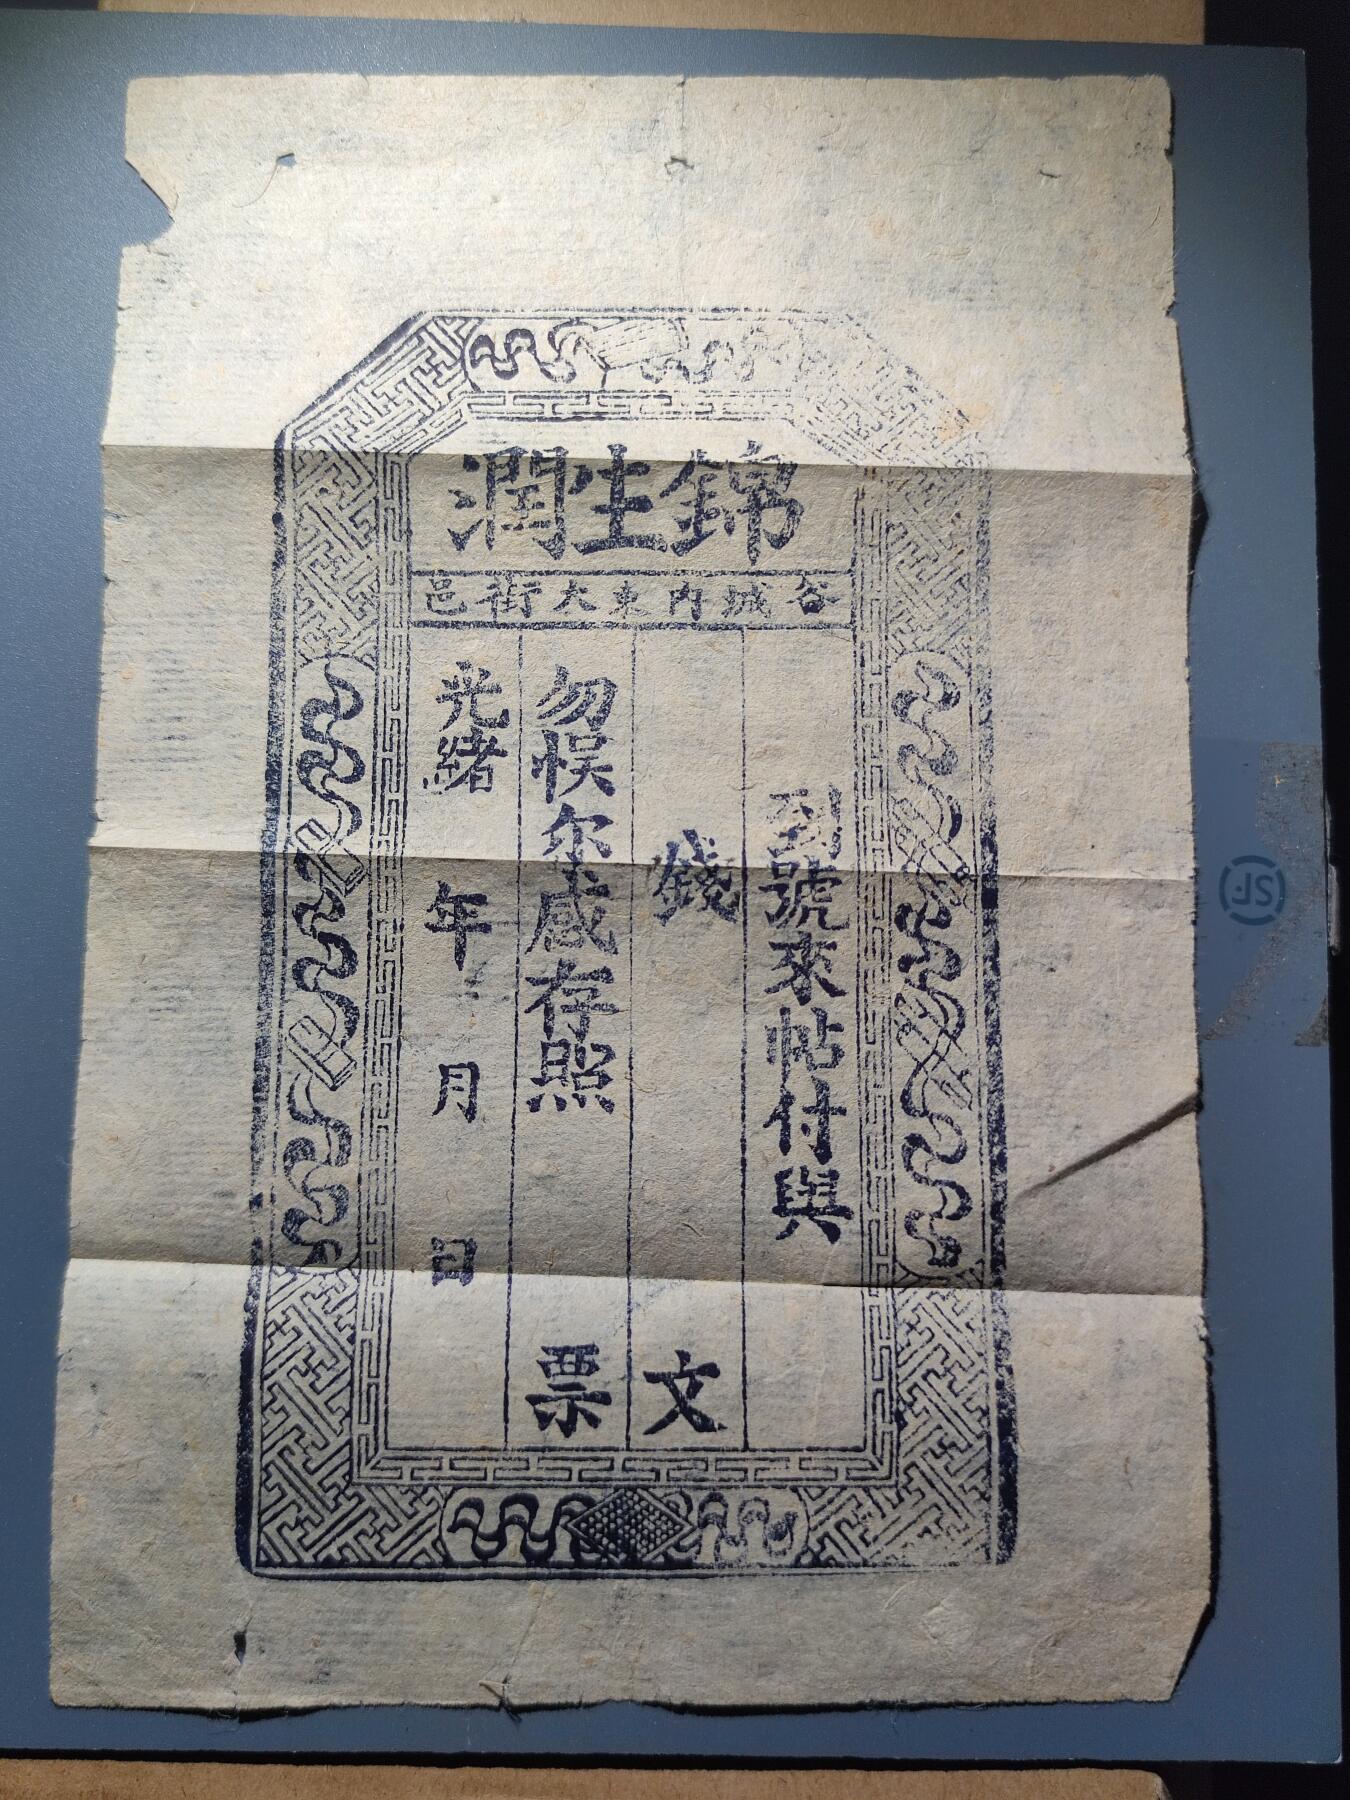 錦生潤
谷城内東大街邑
到號來帖付與
錢 文
勿悮尔咸存照 票
光緒 年 月 日